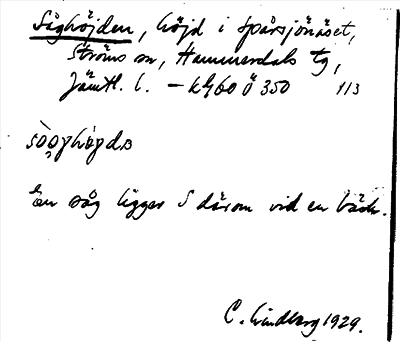 Såghöjden, höjd i Spårsjönäset,
Ströms sn, Hammerdals tg,
Jämtl. l. – kbl 60 Ö 350 113
En såg ligger S därom vid en bäck.
C. Lindberg 1929.